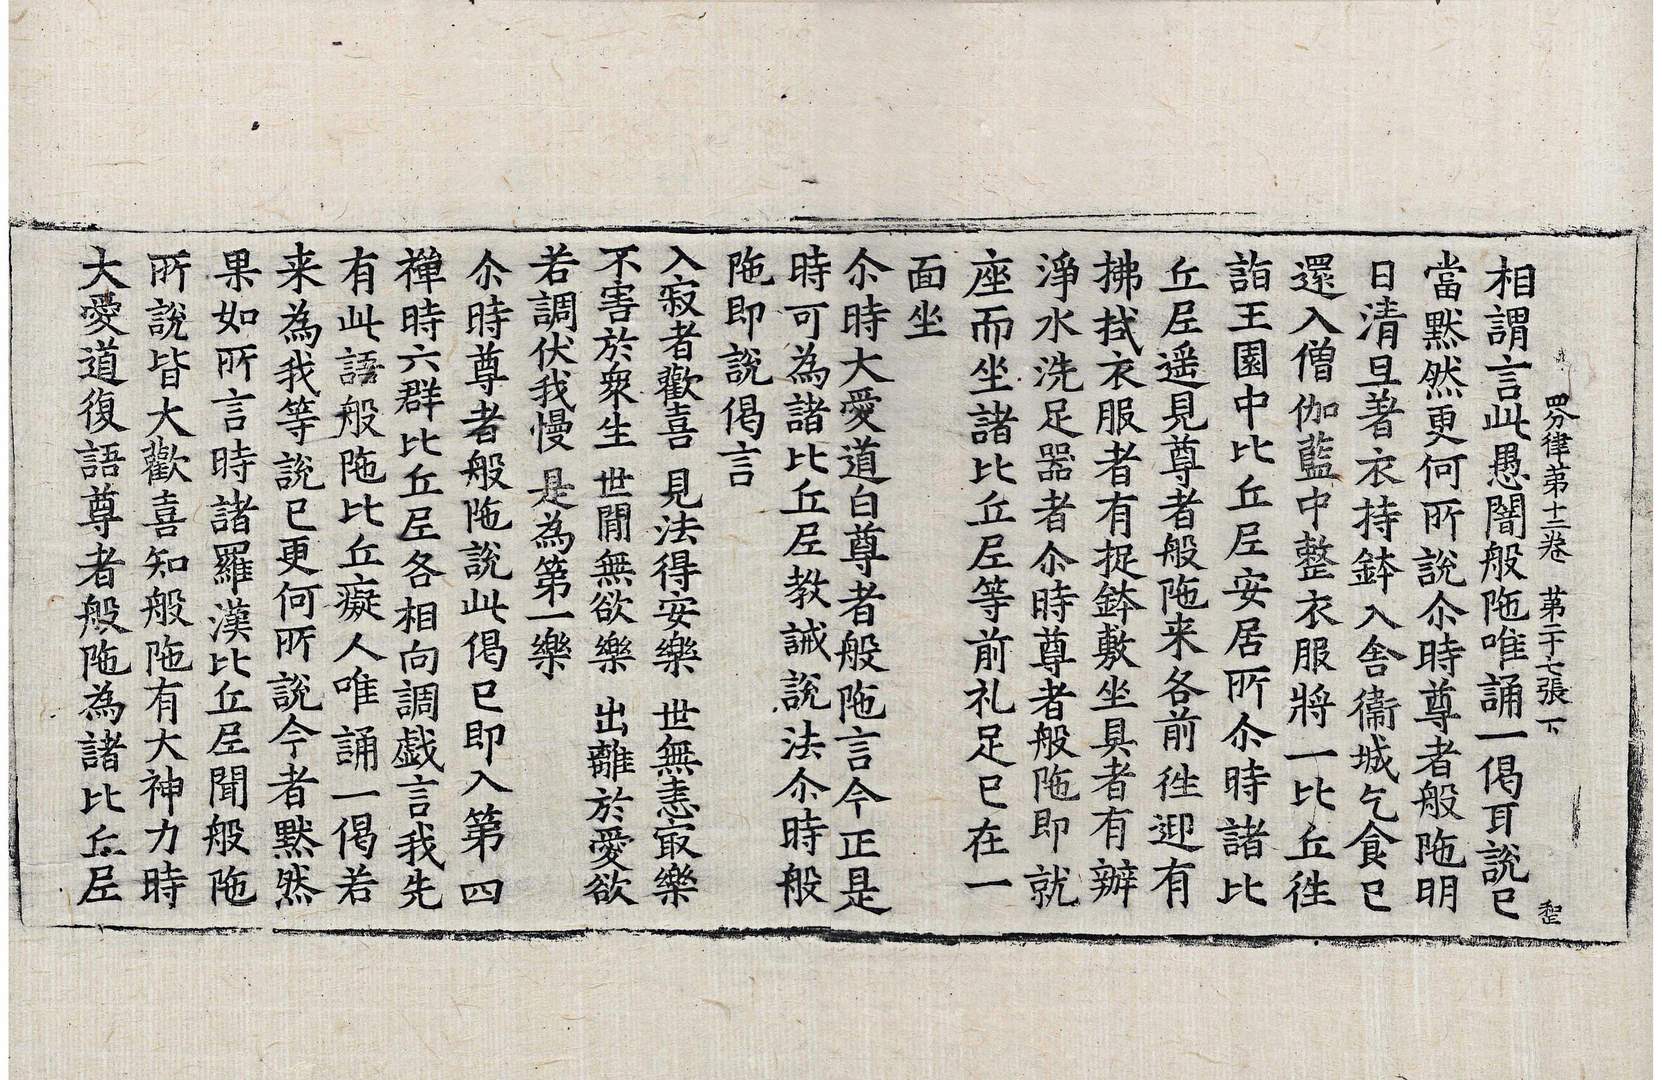 四分律第十二卷 第二十七張 下
相謂言此愚闇般陁唯誦一偈耳說已
當默然更何所說尒時尊者般陁明
日清旦著衣持鉢入舍衞城乞食已
還入僧伽藍中整衣服將一比丘徃
詣王園中比丘𡰱安居所尒時諸比
丘𡰱遥見尊者般陁来各前徃迎有
拂拭衣服者有捉鉢敷坐具者有辦
淨水洗足器者尒時尊者般陁即就
座而坐諸比丘𡰱等前礼足已在一
面坐
尒時大愛道白尊者般陁言今正是
時可為諸比丘𡰱教誡說法尒時般
陁即說偈言
入寂者歡喜 見法得安樂 世無恚㝡樂
不害於衆生 世閒無欲樂 出離於愛欲
若調伏我慢 是為第一樂
尒時尊者般陁說此偈已即入第四
禪時六群比丘𡰱各相向調戲言我先
有此語般陁比丘癡人唯誦一偈若
来為我等說已更何所說今者默然
果如所言時諸羅漢比丘𡰱聞般陁
所說皆大歡喜知般陁有大神力時
大愛道復語尊者般陁為諸比丘𡰱